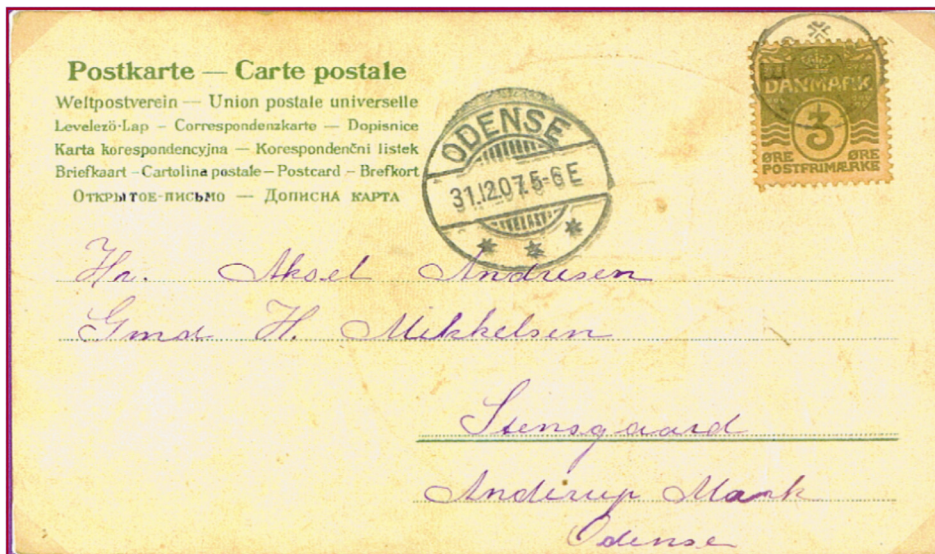 Postkarte — Carte postale
Weltpostverein — Union postale universelle
Levelező-Lap — Correspondenzkarte — Dopisnice
Karta korespondencyjna — Korespondenčni listek
Briefkaart — Cartolina postale — Postcard — Brefkort
Открытое-письмо — Дописна карта
ODENSE
31.12.07.5-6 E
DANMARK
3
ØRE ØRE
POSTFRIMÆRKE
Hr. Aksel Andresen
Gmd H. Mikkelsen
Stensgaard
Anderup Mark
Odense